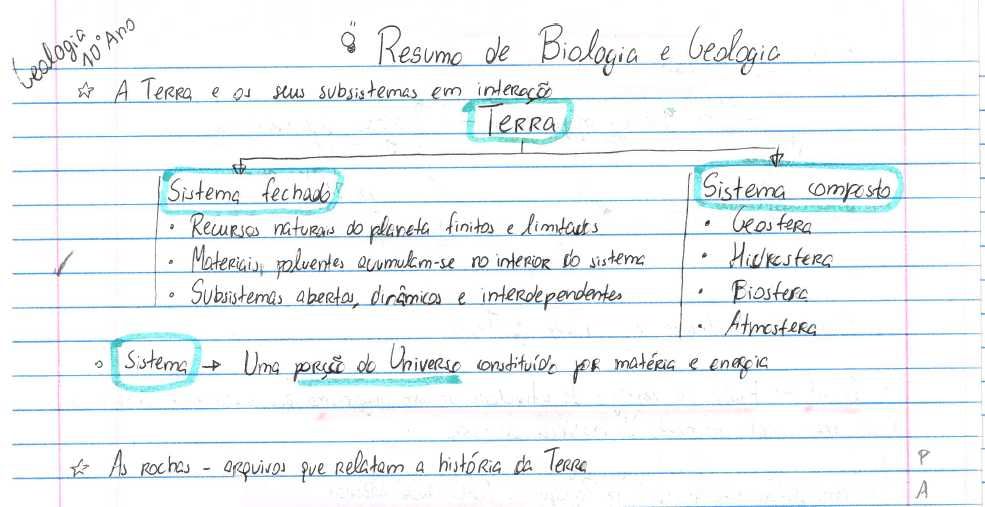 Geologia
10º Ano
Resumo de Biologia e Geologia
☆ A Terra e os seus subsistemas em interação
Terra
Sistema fechado
• Recursos naturais do planeta finitos e limitados
• Materiais, poluentes acumulam-se no interior do sistema
• Subsistemas abertos, dinâmicos e interdependentes
Sistema composto
• Geosfera
• Hidrosfera
• Biosfera
• Atmosfera
◦ Sistema → Uma porção do Universo constituído por matéria e energia
☆ As rochas - arquivos que relatam a história da Terra
P
A